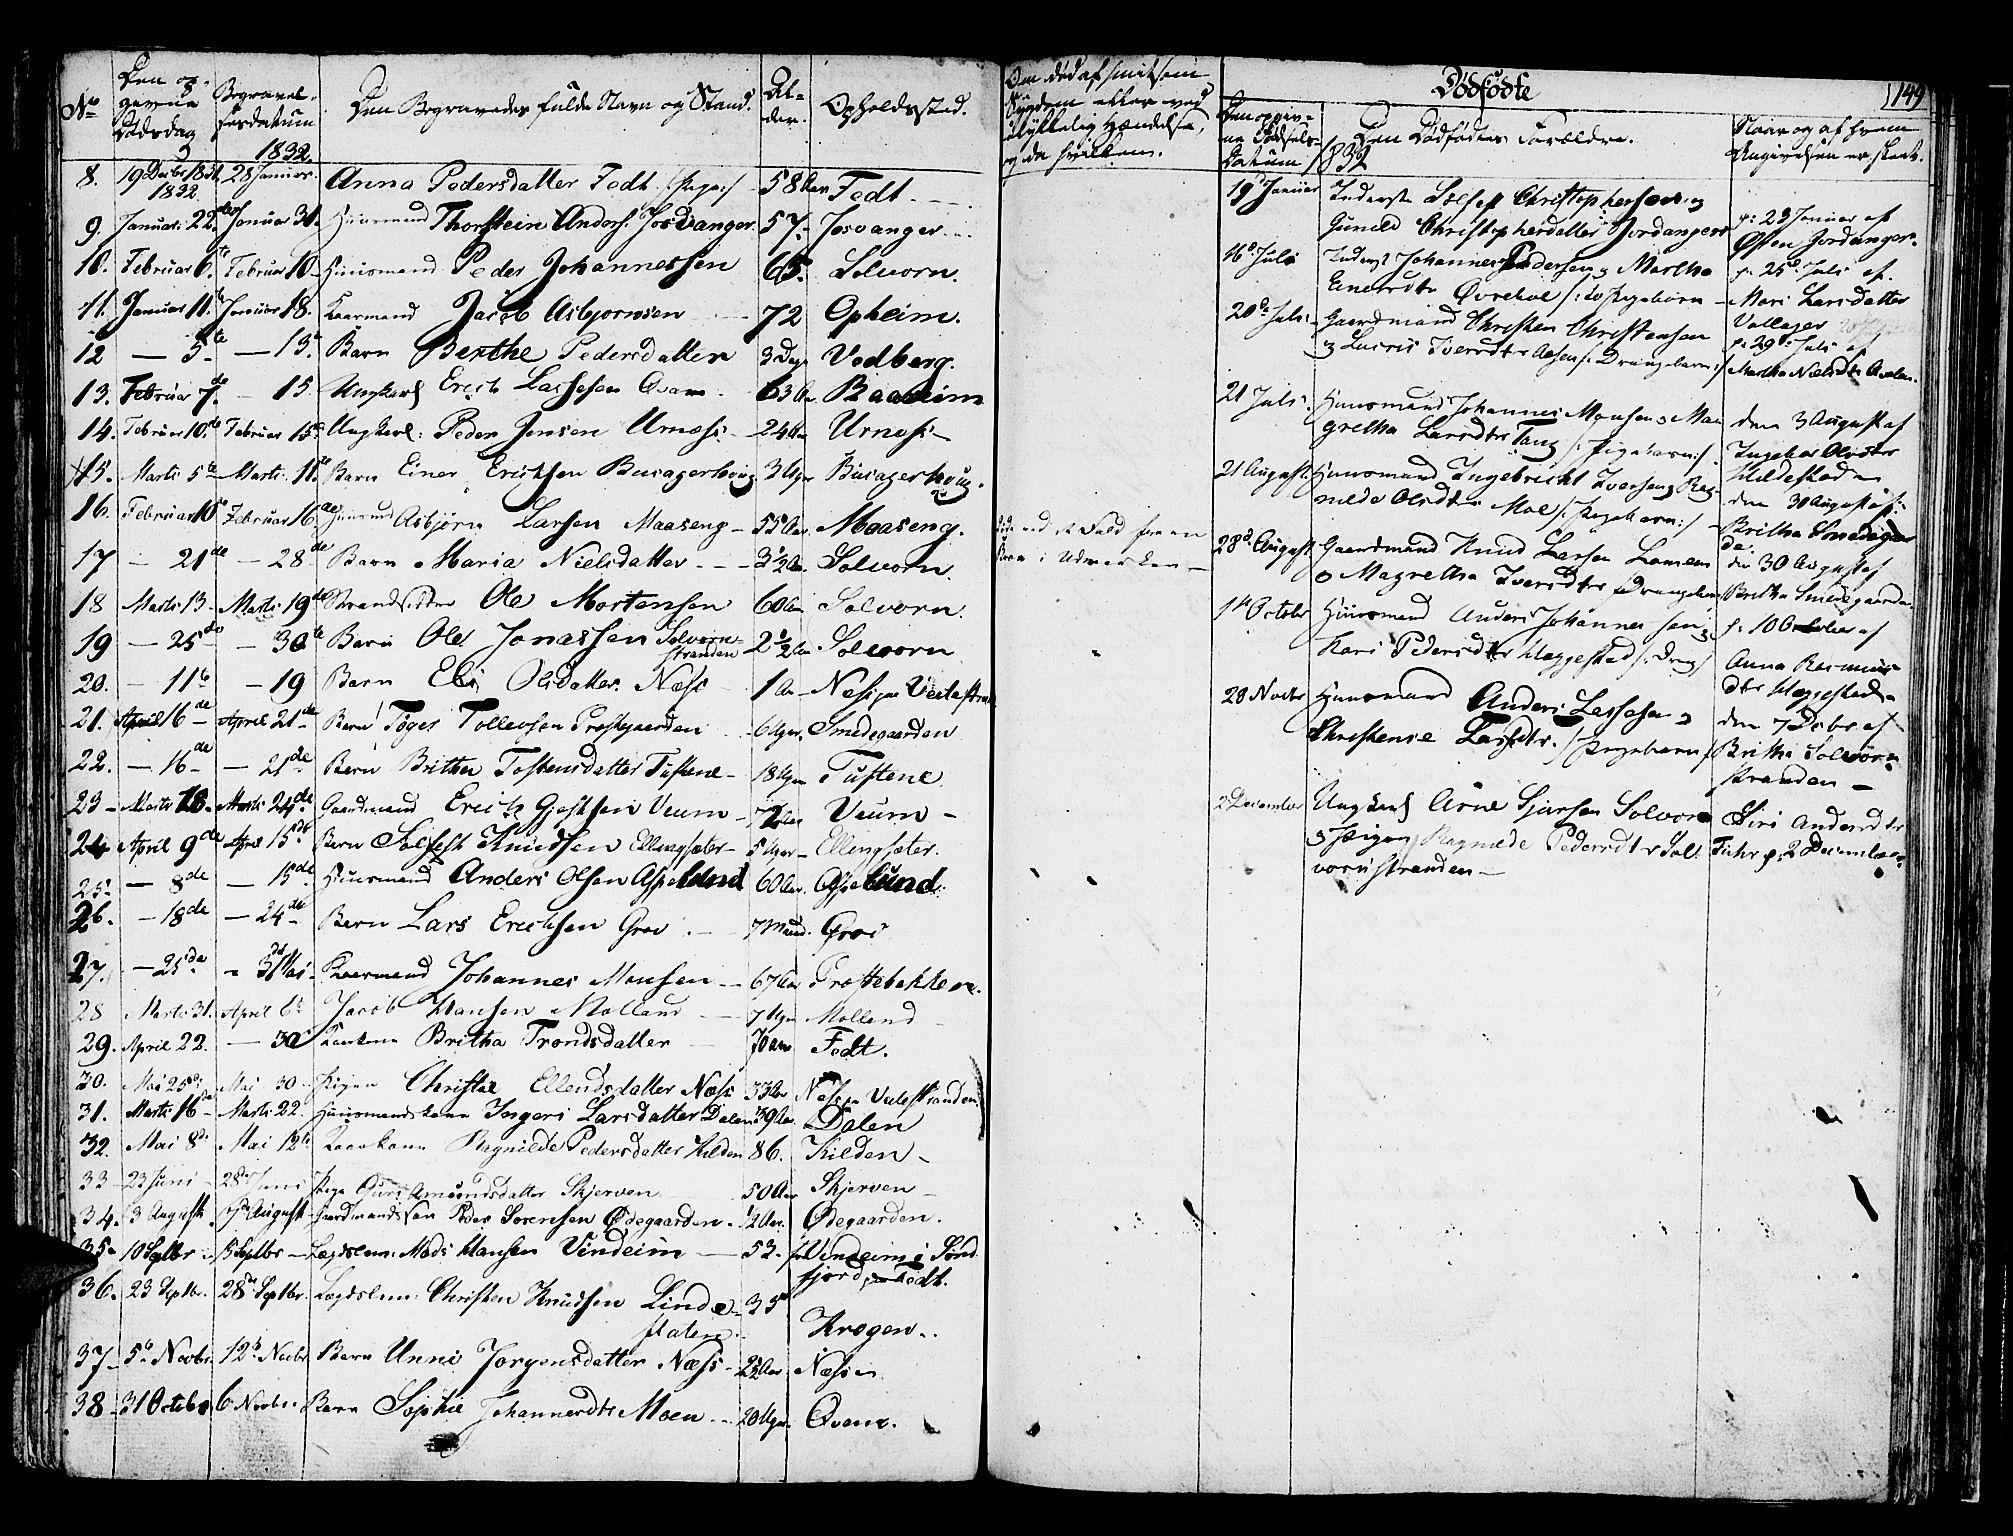 149
No
Den opgivne Dødsdag
Begravelsesdatum 1832.
Den Begravedes fulde Navn og Stand.
Alder.
Opholdssted.
Om død af smitsom Sygdom eller ved ulykkelig Hændelse, og da hvilken.
8. 19 Decbr 1831 28 Januar Anna Pedersdatter Fedt /: Pige :/ 58 Aar Fedt
9. Januar 22de Januar 31 Huusmand Thorstein Anders. Josvanger 57 Josvanger
10. Februar 6te Februar 10 Huusmand Peder Johannessen 65 Solvorn.
11. Januar 11te Januar 18. Kaarmand Jacob Asbjørnsen 72 Opheim.
12 — 5te — 13 Barn Berthe Pedersdatter 3 Dage Vedberg.
13. Februar 7de — 15. Ungkarl Erich Lassesen Qvam 63 Aar Baaheim
14. Februar 10de Februar 15 Ungkarl: Peder Jensen Urness 24 Aar Urness
15. Marti 5te Marti 11te Barn Einer Ericksen Busagerhoug 3 Uger Busagerhoug.
16. Februar 10 Februar 16 Huusmand Asbjørn Larsen Maaseng 55 Aar Maaseng.
17 — 21de — 28de Barn Maria Nielsdatter 3 1/2 Aar Solvorn.
18 Marti 13 Marti 19de Strandsidder Ole Mortensen 60 Aar Solvorn.
19 — 25de — 30te Barn Ole Jonassen Solvornstranden 2 1/2 Aar Solvorn
20. — 11te — 19 Barn Eli Olsdatter Næss 1 Aar Næss
21. April 16de April 21de Barn Tøger Tollevsen Prestegaarden 6 Uger Smedegaarden
22. — 16de — 21de Barn Britha Tostensdatter Fustene 18 Uger Fustene
23 Marti 18 Marti 24de Gaardmand Erich Gjertsen Veum 72 Aar Veum
24 April 9de April 15de Barn Solfest Knudsen Ellingsæter 5 Uger Ellingsæter.
25 — 8de — 15de Huusmand Anders Olsen Aspelund 60 Aar Aspelund.
26. — 18de — 24de Barn Lars Erichsen Grov 7 Maand. Grov
27. — 25de 31 Mai Kaarmand Johannes Monsen 67 Aar Prestebakken.
28 Marti 31. April 6te Jacob Hansen Molland 7 Uger Molland
29. April 22. — 30 Kaarkone Britha Trondsdatter 70 Aar Fedt.
30. Mai 25de Mai 30 Pigen Christie Ellendsdatter Næss 33 Aar
31. Marti 16de Marti 22. Huusmandskone Ingeri Larsdatter Dalen 39 Aar Dalen
32. Mai 8de Mai 12te Kaarkone Ragnilde Pedersdatter Kilden 86. Kilden
33 23 Juni 28de Juni Pige Guri Amundsdatter Skjerven 50 Aar Skjerven
34. 3 August 7de August Gaardmandssøn Peder Sørensen Ødegaarden 1/2 Aar. Ødegaarden.
35 10 Septbr 15 Septbr Lægdslem: Mads Hansen Vindeim 53. Vindeim i Søndfjord, Fedt.
36. 23 Septbr. 28de Septbr. Lægdslem Christen Knudsen Lindeflaten 35 Krogen
37 5te Novbr. 12te Novbr Barn Unni Jørgensdatter Næss Næss
38 31 Octobr 6 Novbr. Barn Sophie Johannesdtr Moen 20 Uger. Qvam.
ved et Fald fra en i Udmarken
Dødfødte
Den opgivne Fødselsdatum 1832
Den Dødfødtes Forældre.
Naar og af hvem Angivelsen er skeet.
19 Januar Inderst Solfest Christophersen og
Gunild Christophersdatter Jordanger
p: 23 Januar af
Østen Jordanger.
16 Juli Inderst Johannes Pedersen og Martha
Enersdtr Øvrebøe Pigebarn
p: 25de Juli af
Mari Larsdatter
20de Juli Gaardmand Christen Christensen
p: 29 Juli af
Martha Nielsdtr
21 Juli. Huusmand Johannes Monsen og Margretha Larsdtr Tang /: Pigebarn :/
den 3 August af
21 August Huusmand Ingebricht Iversen og Ragnilde Olsdtr Moe /: Pigebarn :/
den 30 August af
Britha Smedegaarden
28 August Gaardmand Knud Larsen
og Magretha Iversdtr
den 30 August af
Britha Smedegaarden
1te October Huusmand Anders Johannessen og
Kari Pedersdtr Hæggestad
p: 10 October af
Anna Rasmusdtr Hæggestad
28 Novbr Huusmand Anders Lassesen og
Christense Larsdtr. /: Pigebarn :/
den 7 Decbr af
Britha Solvornstranden
2 December Ungkarl Arne Sjursen Solvorn
og Pigen Ragnilde Pedersdtr Solvornstranden
Siri Andersdtr
p: 2 December